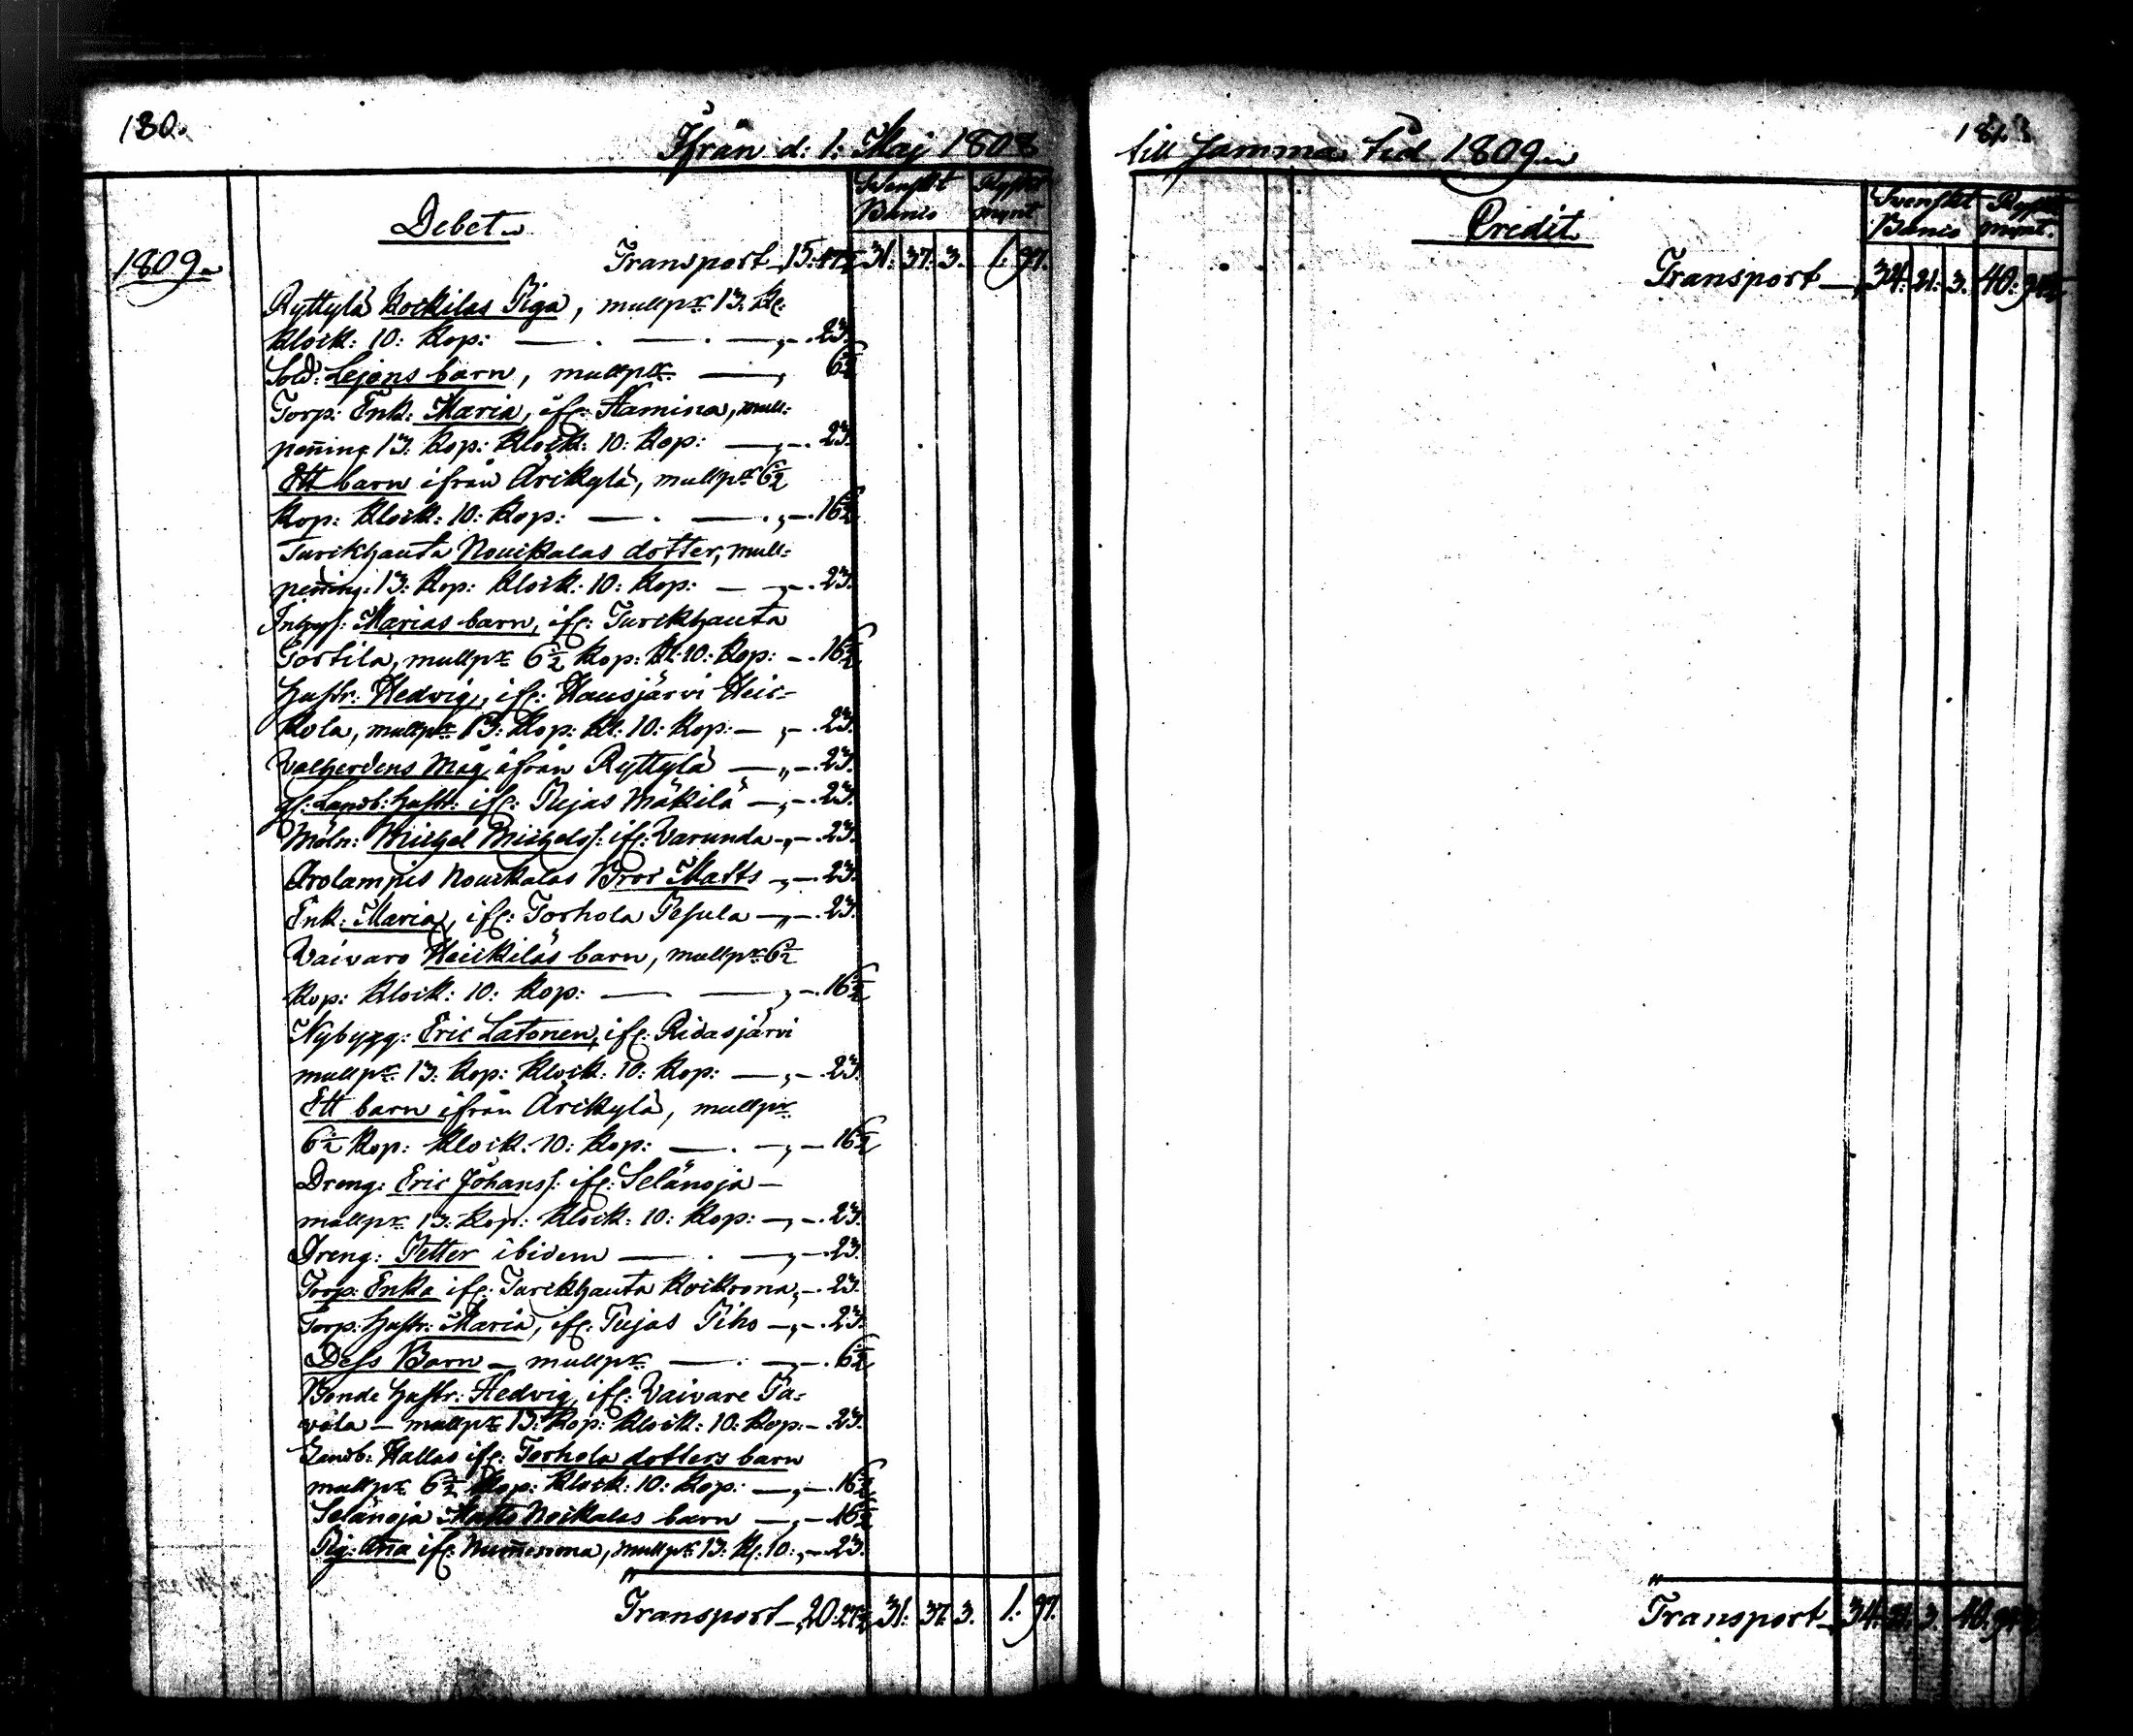 130.
Ifrån d: 1: Maj 1808
Svenskt Ryskt
Banco mynt
Debet
1809
Transport 15: 31: 37: 3. 1. 97.
Ryttylä Kockilas Piga, mullp:r 13. K:
Klock: 10: Kop: — . — . — „ - . 23.
Sold: Lejons barn, mullp:r — „ 6½
Torp: Enk: Maria, ifr: Hamina, mull-
pening 13: Kop: Klock: 10: Kop: — „ - . 23.
Ett barn ifrån Arikylä, mullp:r 6½
Kop: Klock: 10: Kop: — . — . „ - . 16½
Turckhauta Nouckalas dotter, mull-
pening: 13: Kop: Klock: 10: Kop: — „ - . 23.
Inhys: Marias barn, ifr: Turckhauta
Tortila, mullp:r 6½ Kop: Kl: 10: Kop: - . 16½
Hustr: Hedvig, ifr: Hausjärvi Heic-
kola, mullp:r 13: Kop: Kl: 10: Kop: — „ - . 23.
Valherdens Måg, ifrån Ryttylä — „ - . 23.
Landb: Hustr: ifr: Pujas Mäkilä — „ - . 23.
Möln: Michel Michels: ifr: Varunda - „ - . 23.
Arolampis Nouckalas Bror Matts - „ - . 23.
Enk: Maria, ifr: Torhola Pesula — „ - . 23.
Vaivaro Heickiläs barn, mullp:r 6½
Kop: Klock: 10: Kop: — — „ - . 16½
Nybygg: Eric Latonen, ifr: Ridasjärvi
mullp:r 13: Kop: Klock: 10: Kop: — „ - . 23.
Ett barn ifrån Arikylä, mullp:r
6½ Kop: Klock: 10: Kop: — . — „ — 16½
Dreng: Eric Johans: ifr: Selänoja —
mullp:r 13: Kop: Klock: 10: Kop: — „ - . 23.
Dreng: Petter ibidem — . — „ - . 23.
Torp: Enka ifr: Turckhauta „ - . 23.
Torp: Hustr: Maria, ifr: Pujas Piho — „ - . 23.
Dess Barn — mullp:r — . — „ - . 6½
Bonde Hustr: Hedvig, ifr: Vaivare Ta-
vela — mullp:r 13: Kop: Klock: 10: Kop: - . 23.
Landb: Hallas ifr: Torhola dotters barn
mullp:r 6½ Kop: Klock: 10: Kop: — „ - . 16½
Selänoja Matts Nockalas barn — „ - 16½
Pig: Anna ifr: mullp:r 13: K: 10: „ - . 23.
Transport — 20: 27½ 31: 37. 3. 1. 97.
till samma tid 1809
Svenskt Ryskt
Banco mynt.
Credit
Transport — 34: 21: 3. 40:
Transport — 34: 21. 3. 40.